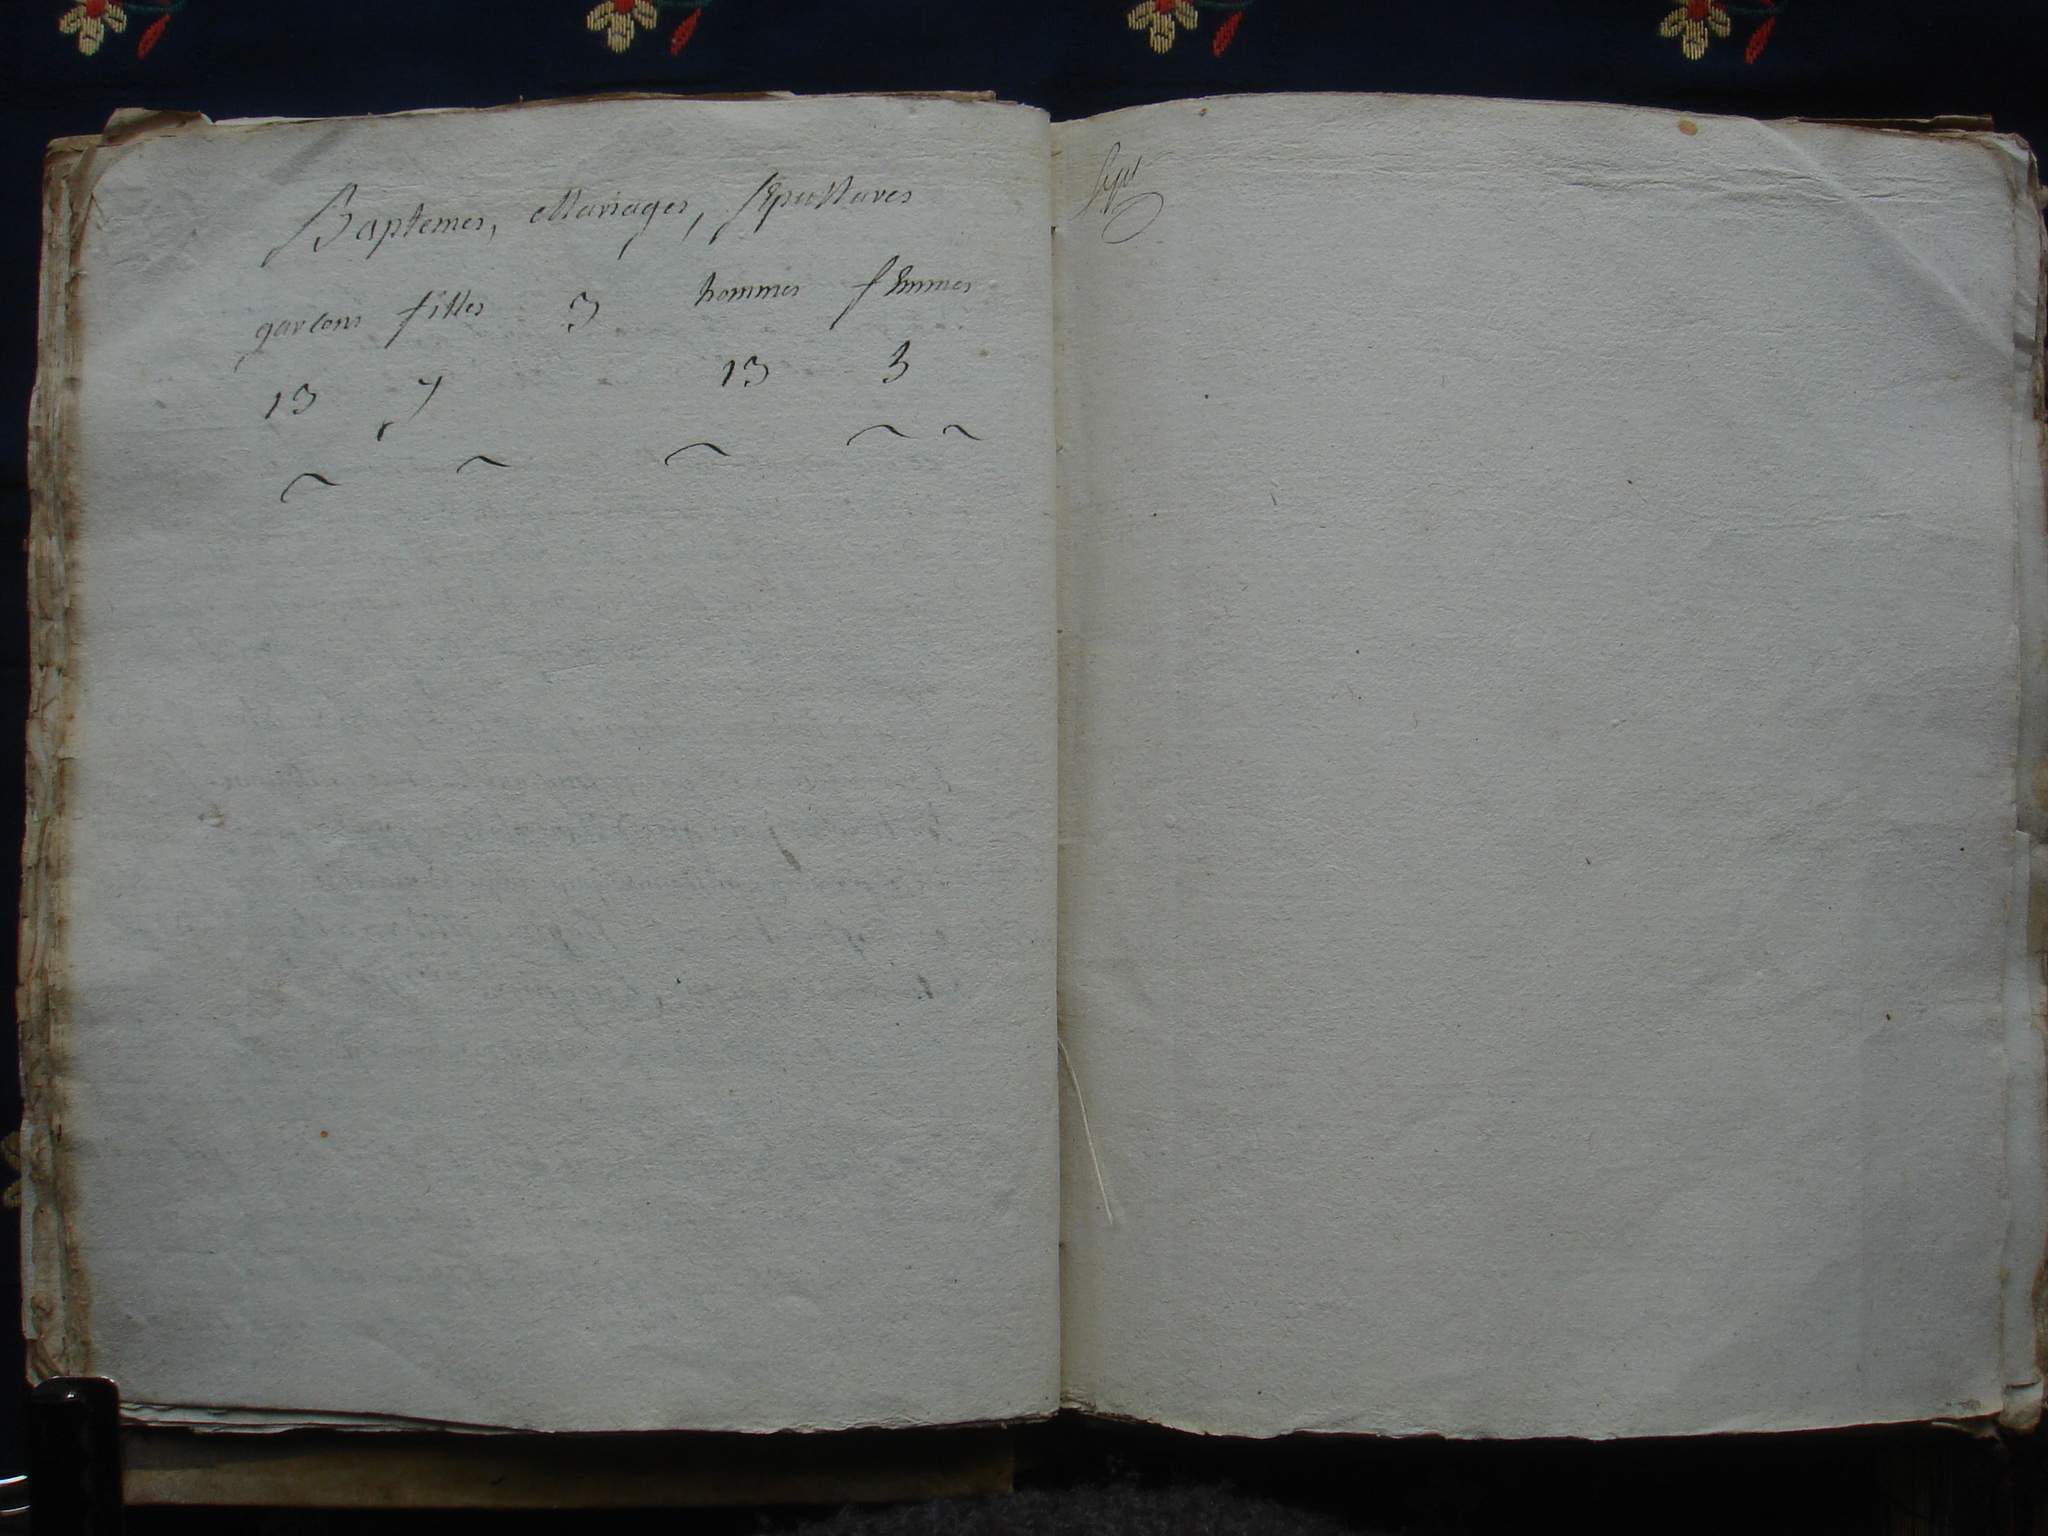 Baptemes, Mariages, Sepultures
garcons filles 3 hommes femmes
13 7 13 3